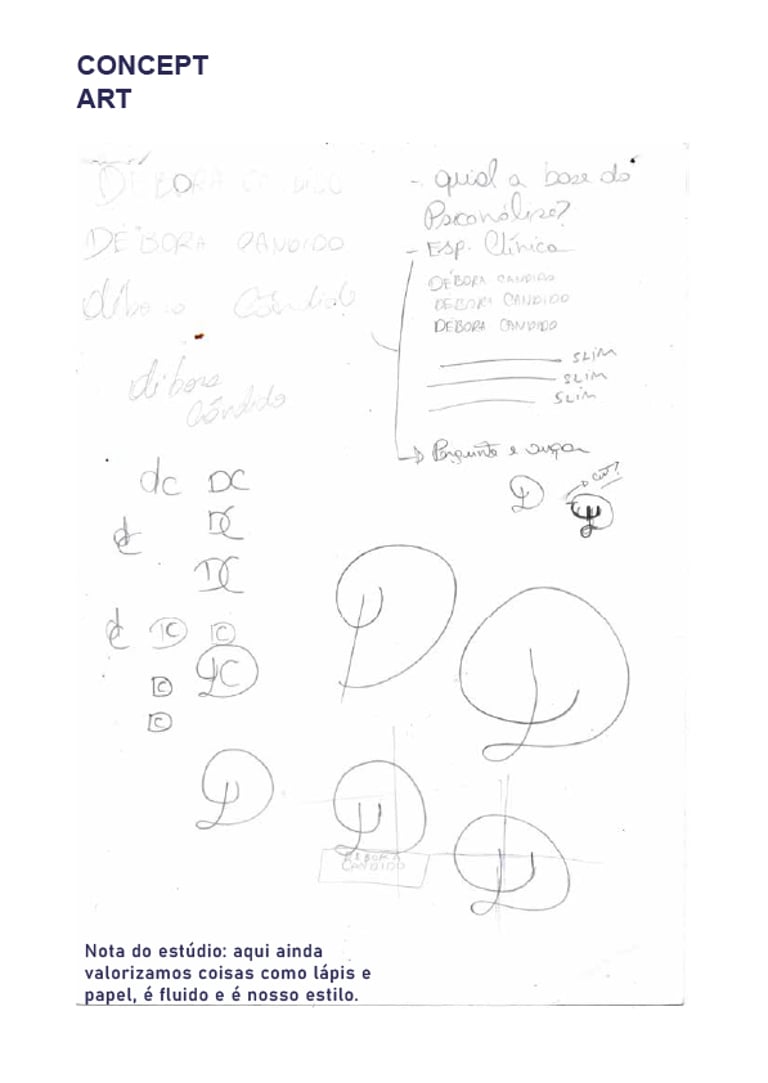 CONCEPT
ART
DÉBORA CANDIDO
DÉBORA CANDIDO
débora Cândido
débora
Cândido
- qual a base da
Psicanálise?
- Esp. Clínica
DÉBORA CANDIDO
DÉBORA CANDIDO
DÉBORA CANDIDO
SLIM
SLIM
SLIM
Pergunta e
dc DC
dc DC
DC
dc DC DC
DC
C
C
D
D
D
D
D
D
D
DÉBORA
CANDIDO
D
Nota do estúdio: aqui ainda
valorizamos coisas como lápis e
papel, é fluido e é nosso estilo.